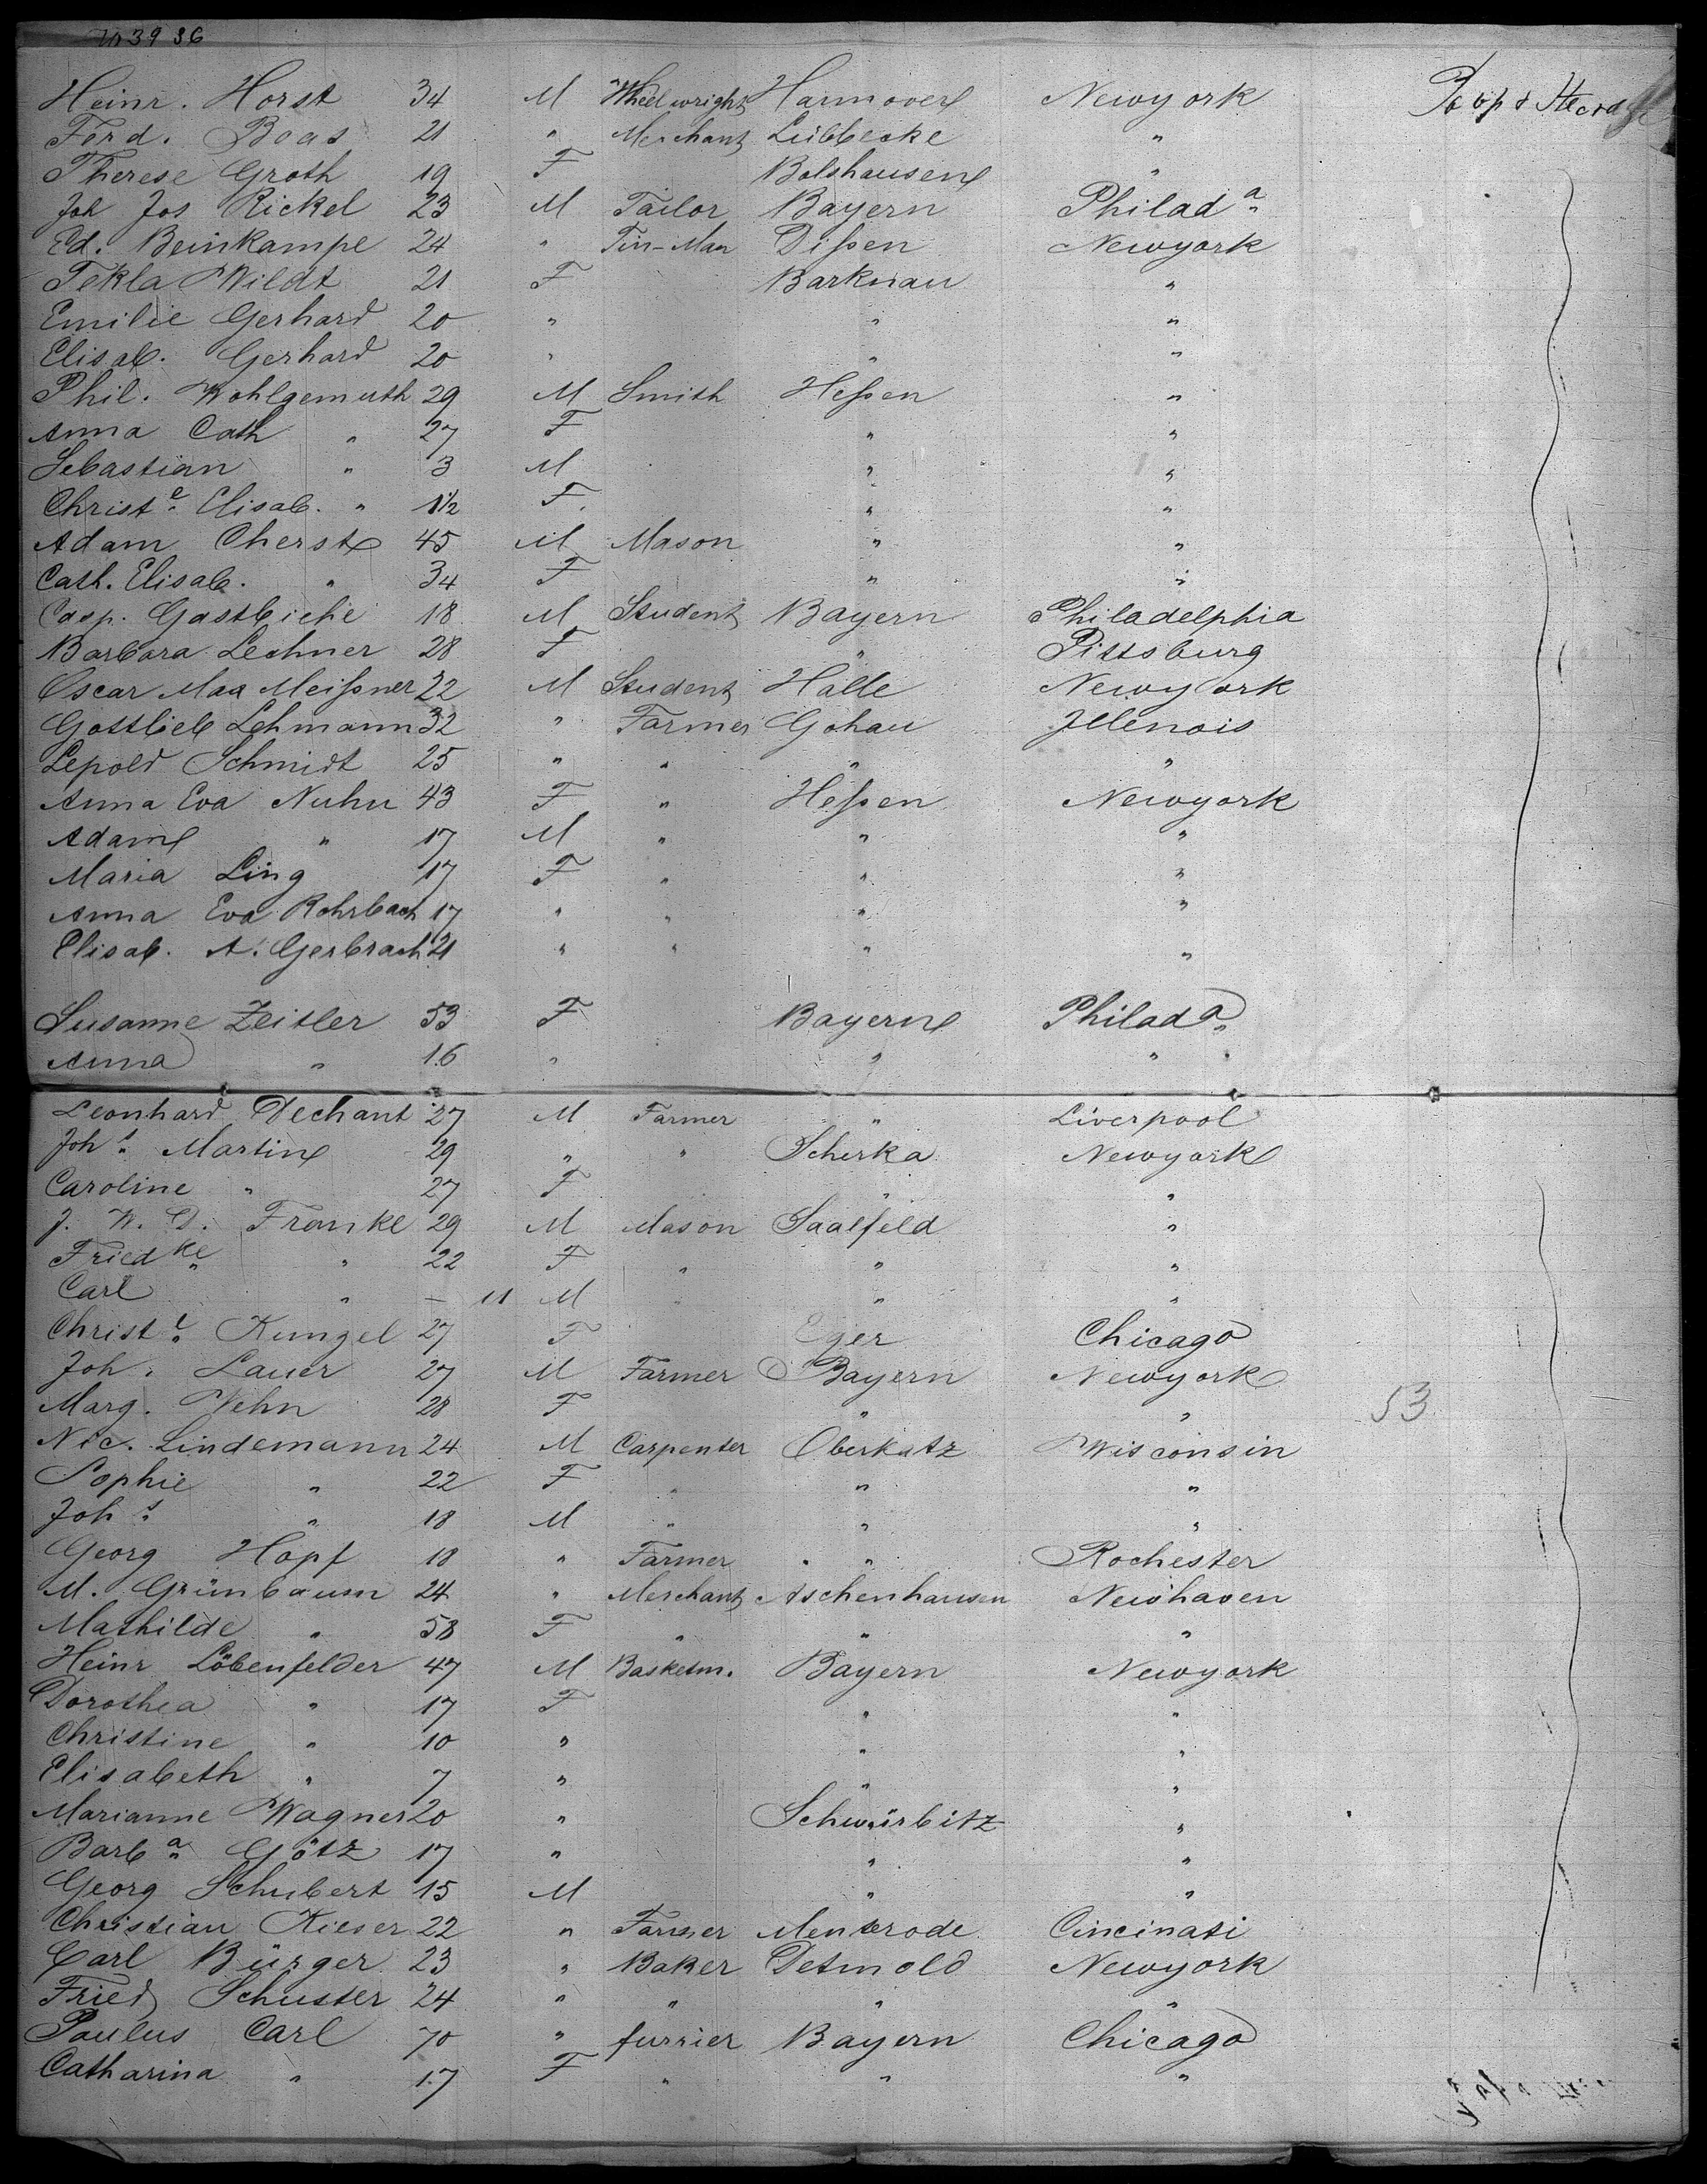 Heinr. Horst 34 M Wheelwright Hannover Newyork
Ferd. Boas 21 " Merchant Lübbecke "
Therese Groth 19 F Bolshausen "
Joh Jos Rickel 23 M Tailor Bayern Philada
Ed. Beinkampe 24 " Tin-Man Dißen Newyork
Tekla Wildt 21 F Barknau "
Emilie Gerhard 20 " " "
Elisab. Gerhard 20 " " "
Phil. Wohlgemuth 29 M Smith Heßen "
Anna Cath " 27 F " "
Sebastian " 3 M " "
Christe Elisab. " 1½ F " "
Adam Cherst 45 M Mason " "
Cath. Elisab. " 34 F " "
Casp. Gastbiche 18 M Student Bayern Philadelphia
Barbara Lechner 28 F " Pittsburg
Oscar Max Meißner 22 M Student Halle Newyork
Gottlieb Lehmann 32 " Farmer Gohau Jllenois
Lepold Schmidt 25 " " " "
Anna Eva Nuhn 43 F " Heßen Newyork
Adam " 17 M " " "
Maria Ling 17 F " " "
Anna Eva Rohrbach 17 " " " "
Elisab. A. Gerbrach 21 " " " "
Susanne Zeitler 53 F Bayern Philada
Anna " 16 " " "
Leonhard Dechant 27 M Farmer " Liverpool
Johs Martin 29 " " Scherka Newyork
Caroline " 27 F " "
J. W. D. Franke 29 M Mason Saalfeld "
Friedke " 22 F " " "
Carl " — 11 M " " "
Christe Kungel 27 F Eger Chicago
Joh. Lauer 27 M Farmer Bayern Newyork
Marg. Wehn 28 F " " 53
Nic. Lindemann 24 M Carpenter Oberkatz Wisconsin
Sophie " 22 F " " "
Johs " 18 M " " "
Georg Hopf 18 " Farmer " " Rochester
M. Grünbaum 24 " Merchant Aschenhausen Newhaven
Mathilde " 58 F " " "
Heinr Löbenfelder 47 M Basketm. Bayern Newyork
Dorothea " 17 F " "
Christine " 10 " " "
Elisabeth " 7 " " "
Marianne Wagner 20 " Schwürbitz "
Barba Götz 17 " " "
Georg Schubert 15 M " "
Christian Kieser 22 " Farmer Menterode Cincinati
Carl Bürger 23 " Baker Detmold Newyork
Fried Schuster 24 " " " "
Paulus Carl 70 " furrier Bayern Chicago
Catharina " 17 F " " "